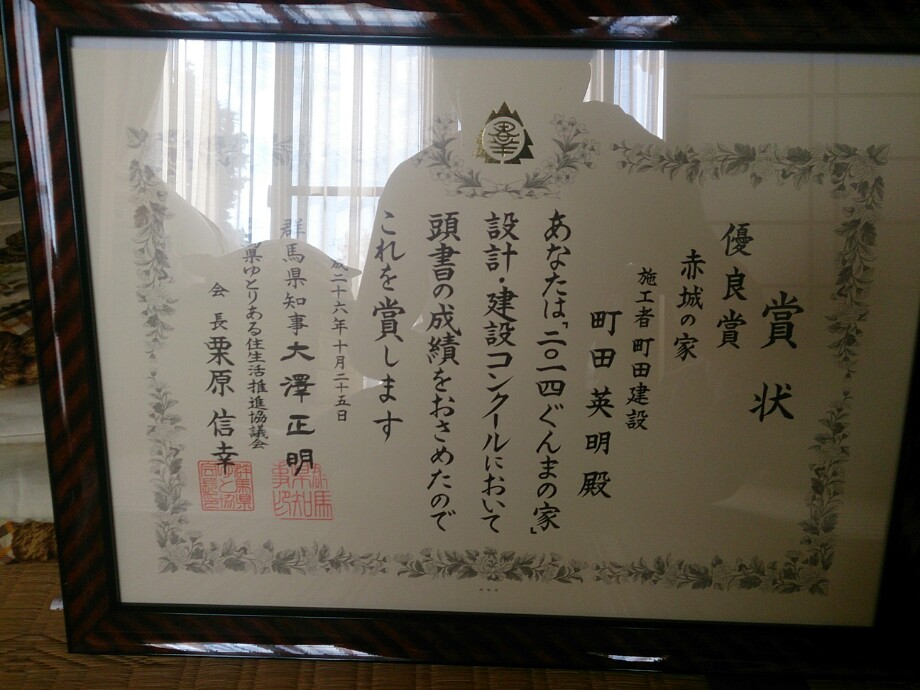 賞状
優良賞
赤城の家
施工者 町田建設
町田英明殿
あなたは「二〇一四ぐんまの家」
設計・建設コンクールにおいて
頭書の成績をおさめたので
これを賞します
成二十六年十月二十五日
群馬県知事 大澤正明
県ゆとりある住生活推進協議会
会長 栗原信幸